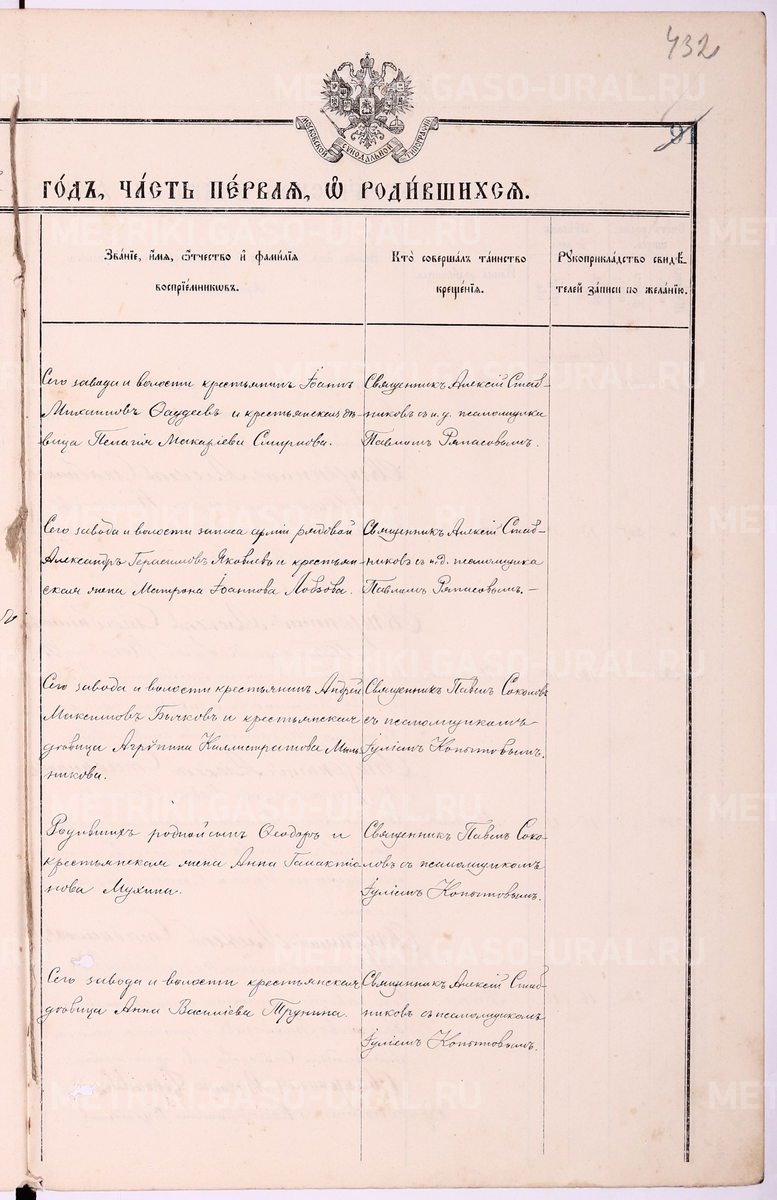 432
91
МОСКОВСКОЙ СѴНОДАЛЬНОЙ ТИПОГРАФІИ
ГО́ДЪ, ЧА́СТЬ ПЕ́РВАЯ, Ѡ РОДИ́ВШИХСЯ.
Зва́нїе, и҆́мѧ, ѻ҆́тчество и҆ фами́лїѧ
воспрїе́мниковъ.
Кто̀ соверша́лъ та́инство
креще́нїѧ.
Рꙋкоприкла́дство свидѣ́-
телей за́писи по жела́нїю.
Сего завода и волости крестьянинъ Іоаннъ
Михаиловъ Ѳаддеевъ и крестьянская дѣ-
вица Пелагія Макаріева Смирнова.
Священникъ Алексій Стаб-
никовъ съ и. д. псаломщика
Павломъ Ряпасовымъ.
Сего завода и волости запаса арміи рядовой
Александръ Герасимовъ Яковлевъ и крестьян-
ская жена Матрона Іоаннова Лобзова.
Священникъ Алексій Стаб-
никовъ съ и. д. псаломщика
Павломъ Ряпасовымъ. —
Сего завода и волости крестьянинъ Андрей
Максимовъ Бычковъ и крестьянская
вдовица Агрѵпина Каллистратова Мель-
никова.
Священникъ Павелъ Соколовъ
съ псаломщикомъ
Іуліемъ Копытовымъ.
Родившихъ родной сынъ Ѳеодоръ и
крестьянская жена Анна Галактіо-
нова Мухина.
Священникъ Павелъ Соко-
ловъ съ псаломщикомъ
Іуліемъ Копытовымъ.
Сего завода и волости крестьянская
вдовица Анна Василіева Трунина.
Священникъ Алексій Стаб-
никовъ съ псаломщикомъ
Іуліемъ Копытовымъ.
METRIKI.GASO-URAL.RU